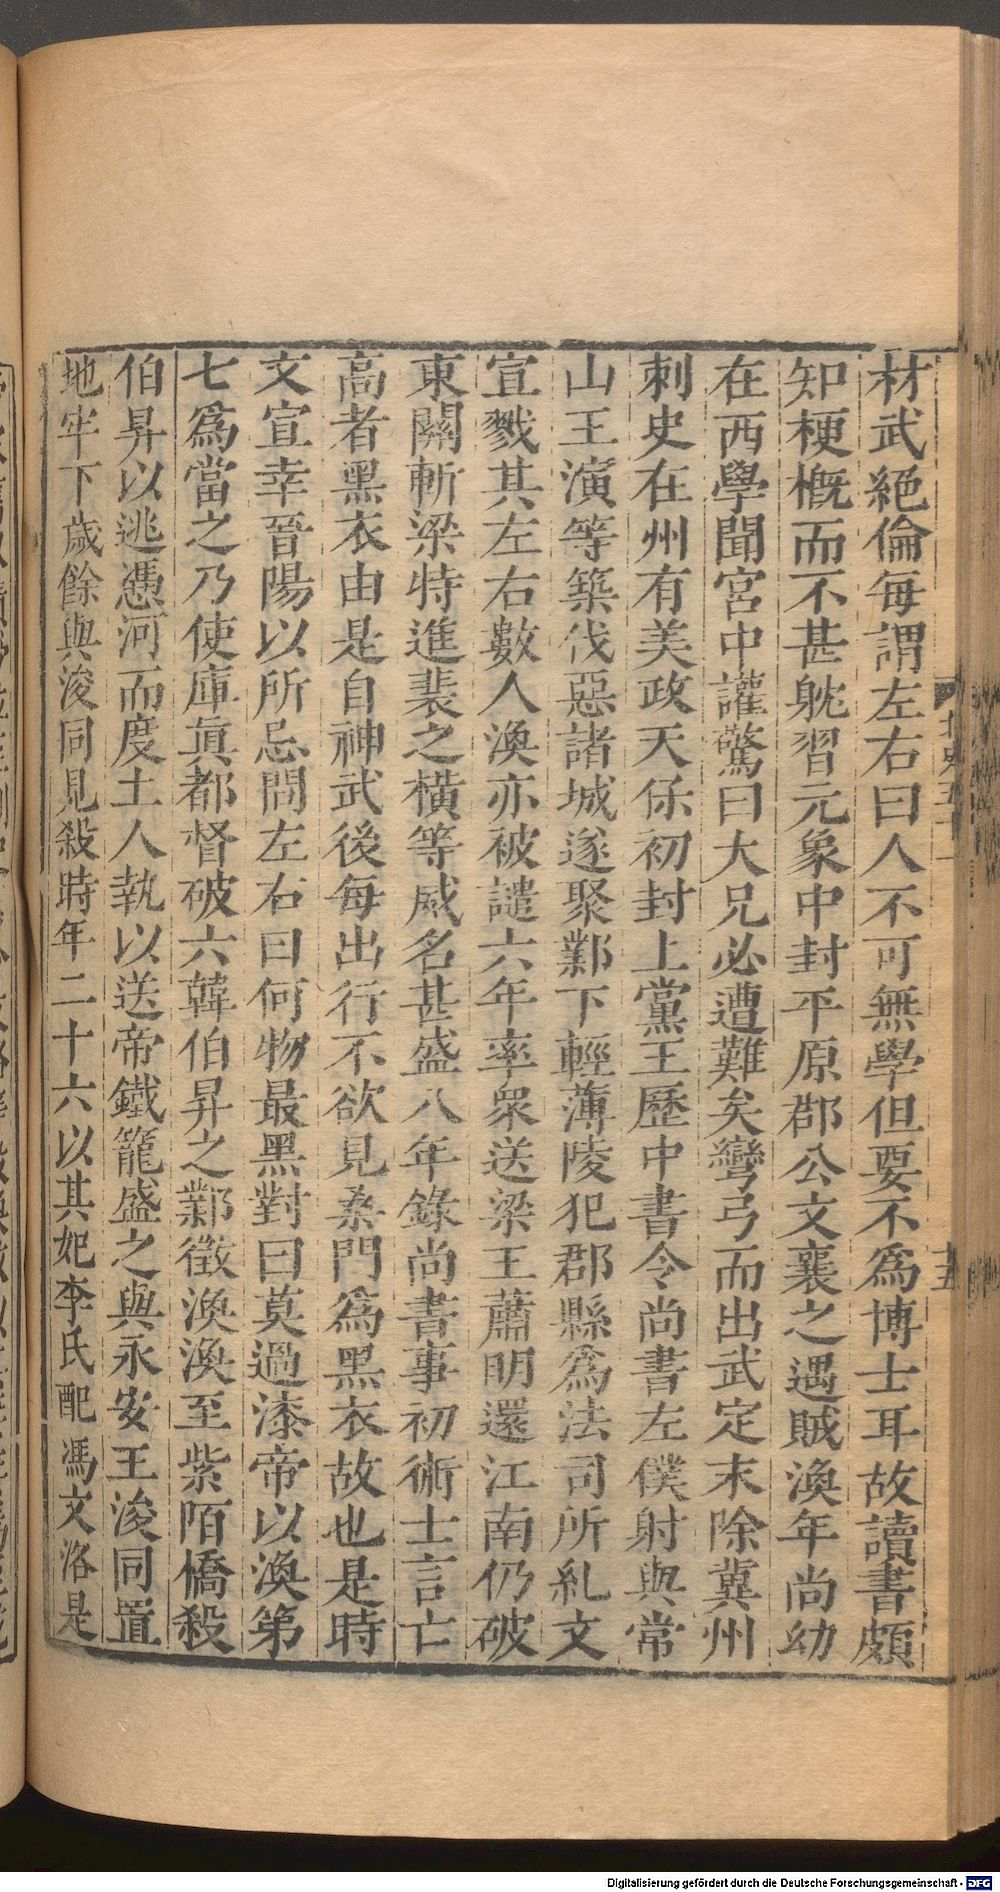 材武絕倫每謂左右曰人不可無學但要不爲博士耳故讀書頗
知梗槪而不甚躭習元象中封平原郡公文襄之遇賊渙年尚幼
在西學聞宮中讙驚曰大兄必遭難矣彎弓而出武定末除冀州
刺史在州有美政天保初封上黨王歷中書令尚書左僕射與常
山王演等築伐惡諸城遂聚鄴下輕薄陵犯郡縣爲法司所糺文
宣戮其左右數人渙亦被譴六年率衆送梁王蕭明還江南仍破
東關斬梁特進裴之橫等威名甚盛八年錄尚書事初術士言亡
高者黑衣由是自神武後每出行不欲見桒門爲黑衣故也是時
文宣幸晉陽以所忌問左右曰何物最黑對曰莫過漆帝以渙第
七爲當之乃使庫眞都督破六韓伯昇之鄴徵渙渙至紫陌橋殺
伯昇以逃憑河而度土人執以送帝鐵籠盛之與永安王浚同置
地牢下歲餘與浚同見殺時年二十六以其妃李氏配馮文洛是
北史五十一
十五
Digitalisierung gefördert durch die Deutsche Forschungsgemeinschaft - DFG